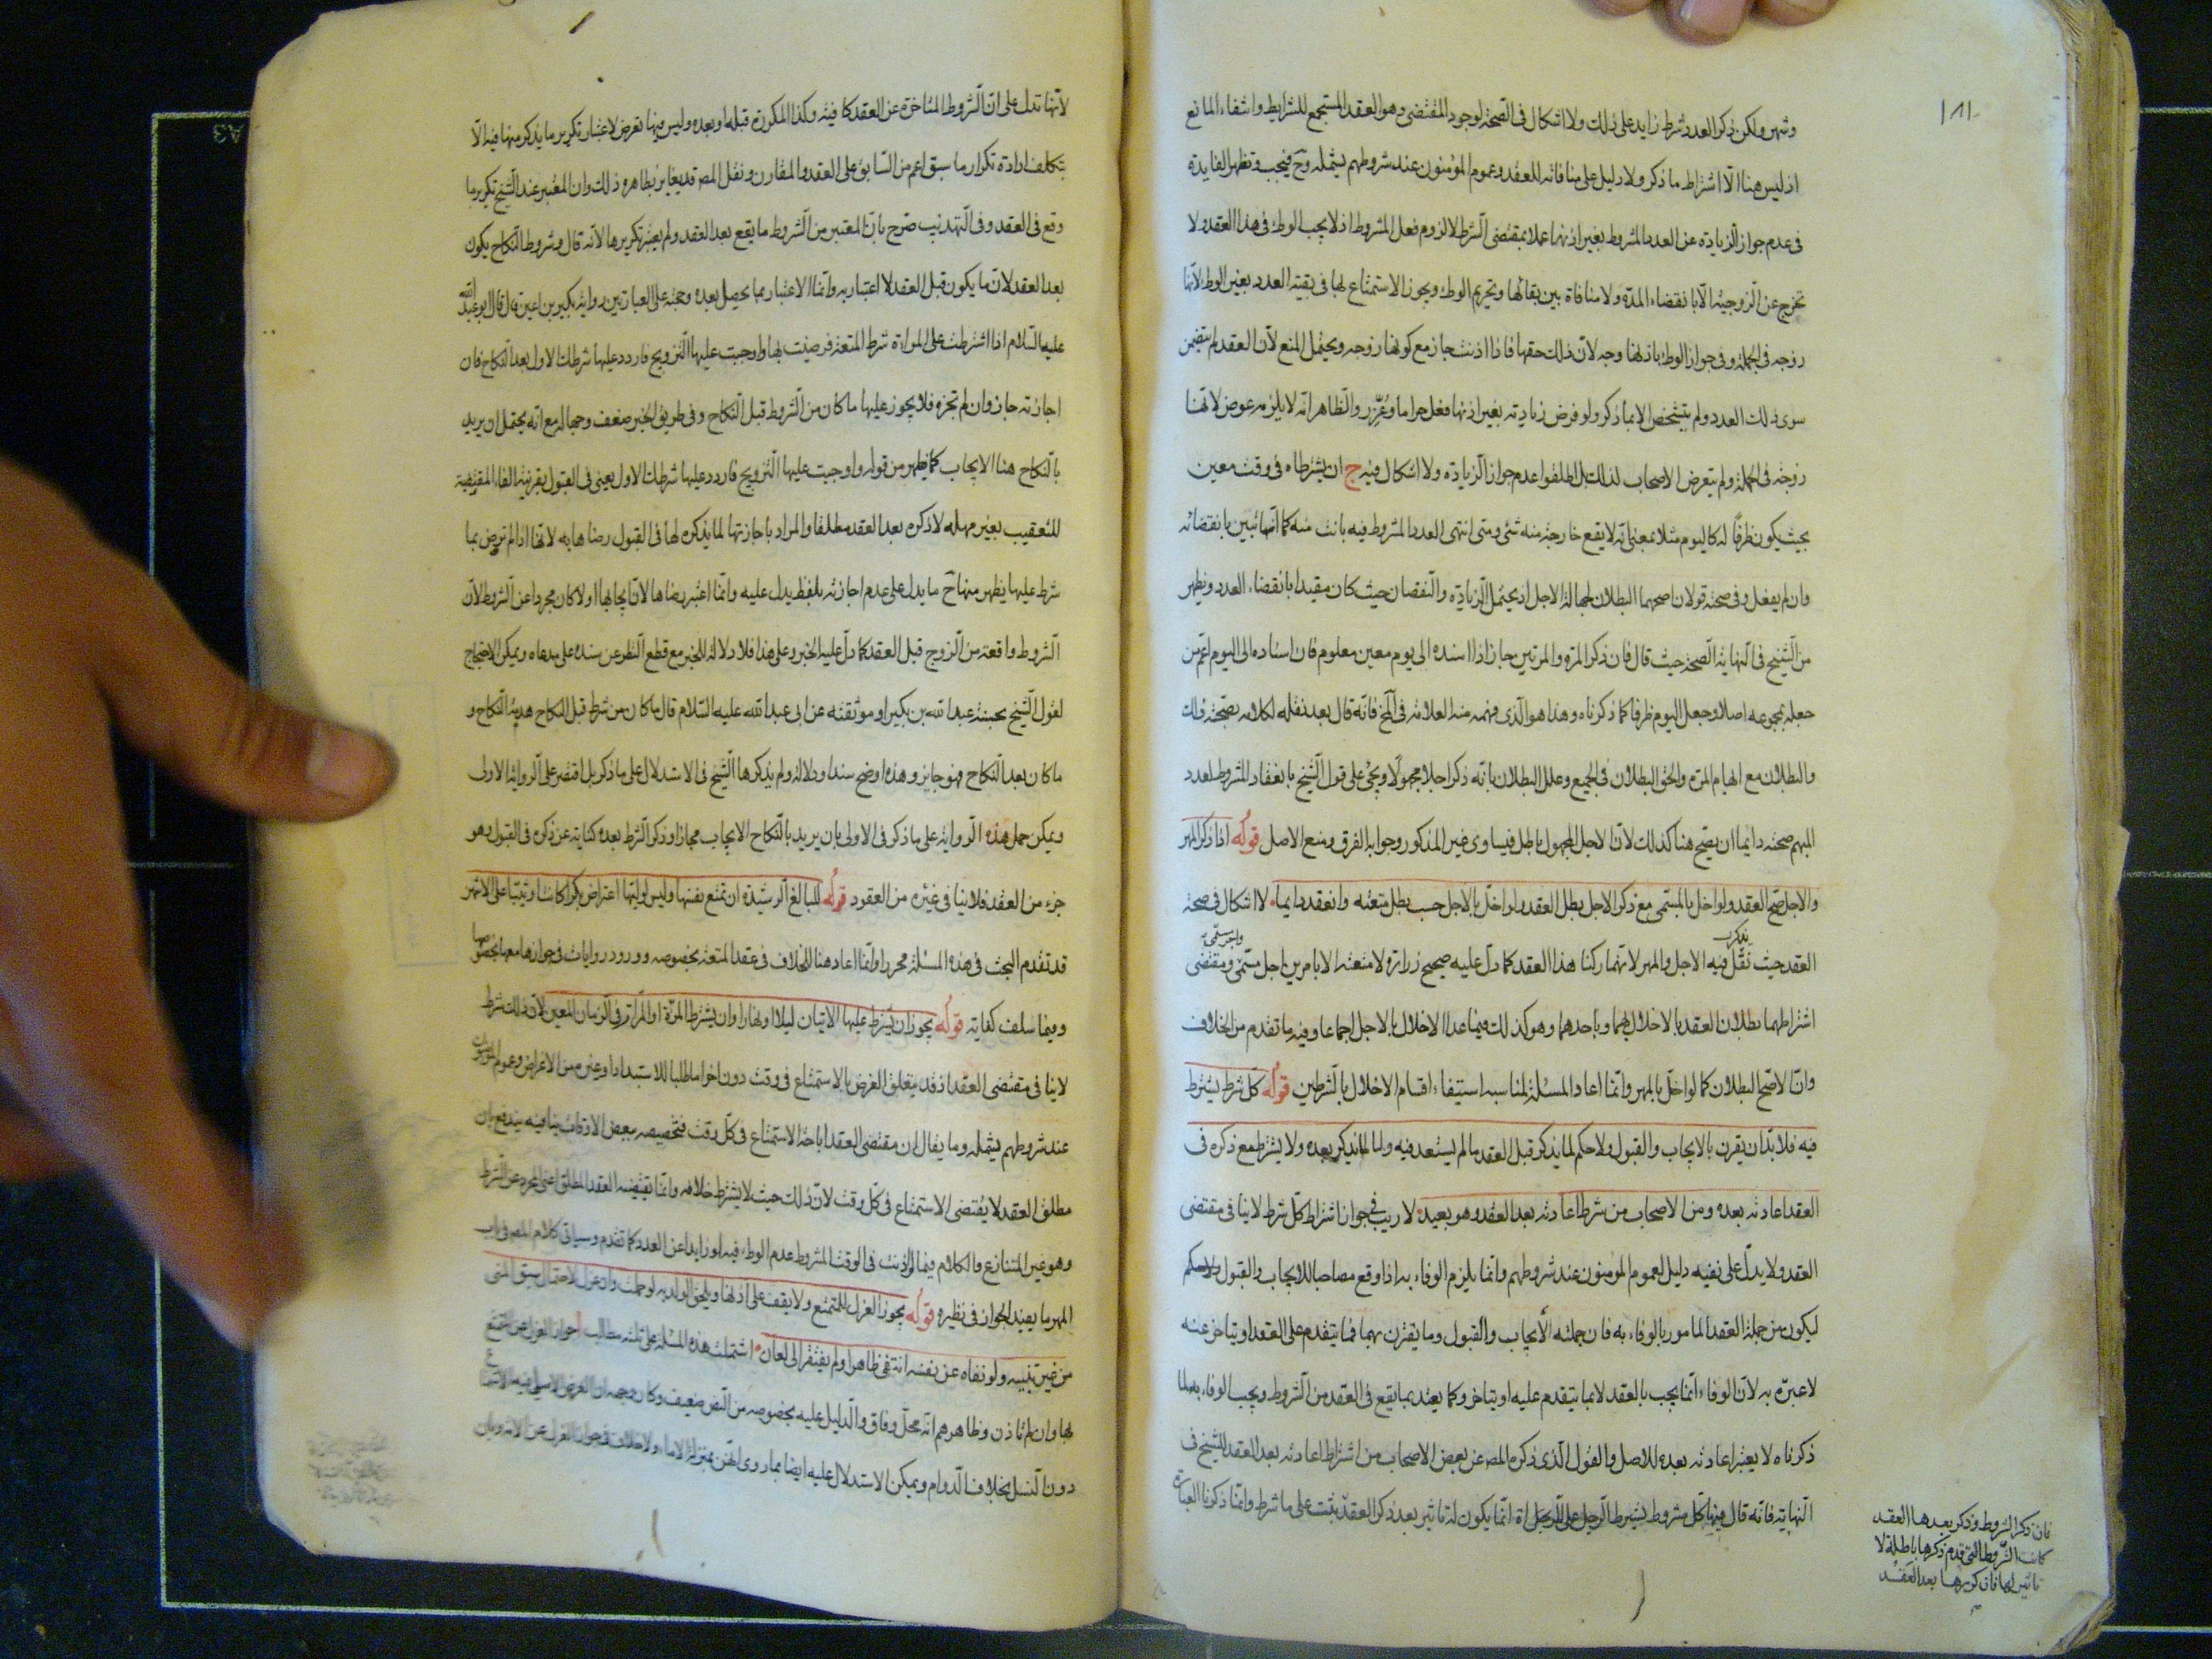 ١٨١
وشهر ولكن ذكر العدد شرط زايد على ذلك ولا اشكال في الصحة لوجود المقتضى وهو العقد المستجمع للشرايط وانتفاء المانع
اذ ليس هنا الا اشتراط ما ذكر ولا دليل على منافاته للعقد وعموم المؤمنون عند شروطهم يشمله وح فيجب وتظهر الفايدة
في عدم جواز الزيادة عن العدد المشروط بغير اذنها عملا بمقتضى الشرط لا لزوم فعل المشروط اذ لا يجب الوطئ في هذا العقد ولا
تخرج عن الزوجية الا بانقضاء المدة ولا منافاة بين بقائها وتحريم الوطئ ويجوز الاستمتاع لها في بقية العدد بغير الوطئ لانها
زوجه في الجملة وفي جواز الوطئ باذنها وجه لان ذلك حقها فاذا اذنت جاز مع كونها زوجه ويحتمل المنع لان العقد لم يتضمن
سوى ذلك العدد ولم يتشخص الا بما ذكر ولو فرض زيادته بغير اذنها فعل حراما وعزر والظاهر انه لا يلزمه عوض لانها
زوجة في الجملة ولم يتعرض الاصحاب لذلك بل اطلقوا عدم جواز الزيادة ولا اشكال فيه ج ان يشترطاه في وقت معين
بحيث يكون ظرفا له كاليوم مثلا بمعنى انه لا يقع خارجة منه شئ ومتى انتهى العدد المشروط فيه بانت منه كما انها تبين بانقضائه
وان لم يفعل وفي صحته قولان اصحهما البطلان لجهالة الاجل اذ يحتمل الزيادة والنقصان حيث كان مقيدا بانقضاء العدد ويظهر
من الشيخ في النهاية الصحة حيث قال فان ذكر المرة والمرتين جاز اذا اسنده الى يوم معين معلوم فان اسناده الى اليوم اعم من
جعله بمجوعه اصلا وجعل اليوم ظرفا كما ذكرناه وهذا هو الذي فهمه منه العلامة في المخ فانه قال بعد نقله لكلامه بصحة ذلك
والبطلان مع ابهام المرة والحق البطلان في الجميع وعلل البطلان بانه ذكر اجلا مجهولا ويجئ على قول الشيخ بانعقاد المشروط لعدد
المبهم صحته دايما ان يصح هنا كذلك لان الاجل المجهول باطل فيساوى غير المذكور وجوابه الفرق ومنع الاصل قوله اذا ذكر المهر
والاجل صح العقد ولو اخل بالمسمى مع ذكر الاجل بطل العقد ولو اخل بالاجل حسب بطل متعته وانعقد دايما لا اشكال في صحة
العقد حيث يذكر فيه الاجل والمهر لانهما ركنا هذا العقد كما دل عليه صحيح زرارة ولا متعة الا بامرين اجل مسمى واجر مسمى ومقتضى
اشتراطهما بطلان العقد بالاخلال بهما وباحدهما وهو كذلك فيما عدا الاخلال بالاجل اجماعا وفيه ما تقدم من الخلاف
وان الاصح البطلان كما لو اخل بالمهر وانما اعاد المسئلة لمناسبه استيفاء اقسام الاخلال بالشرطين قوله كل شرط يشترط
فيه فلا بد ان يقرن بالايجاب والقبول ولا حكم لما يذكر قبل العقد ما لم يستعد فيه ولا لما يذكر بعده ولا يشترط مع ذكره في
العقد اعادته بعده ومن الاصحاب من شرط اعادته بعد العقد وهو بعيد لا ريب في جواز اشتراط كل شرط لا ينافى مقتضى
العقد ولا يدل على نفيه دليل لعموم المؤمنون عند شروطهم وانما يلزم الوفاء به اذا وقع مصاحبا للايجاب والقبول
ليكون من جملة العقد المامور بالوفاء به فان جملته الايجاب والقبول وما يقترن بهما فما يتقدم على العقد او يتاخر عنه
لا عبرة به لان الوفاء انما يجب بالعقد لا بما يتقدم عليه او يتاخر وكما يعتد بما يقع في العقد من الشروط ويجب الوفاء به لما
ذكرناه لا يعتبر اعادته بعده للاصل والقول الذي ذكره المص عن بعض الاصحاب من اشتراط اعادته بعد العقد للشيخ في
النهاية فانه قال فيها كل شروط يشترط الرجل على المراة انما يكون له تاثير بعد ذكر العقد يثبت على ما شرط وانما ذكرنا العبارة
فان ذكر الشروط وذكر بعدها العقد
كانت الشروط التي قدم ذكرها باطلة لا
تاثير لها فان كررها بعد العقد
لانها تدل على ان الشروط المتاخرة عن العقد كافية وكذا المكررة قبله او بعده وليس فيها تعرض لاعتبار تكرير ما يذكر منها فيه الا
بتكلف ارادة تكرار ما سبق اعم من السابق على العقد والمقارن ونقل المص قد يغاير بظاهره ذلك وان المعتبر عند الشيخ تكرير ما
وقع في العقد وفي التهذيب صرح بان المعتبر من الشروط ما يقع بعد العقد ولم يعتبر تكريرها لانه قال وشروط النكاح يكون
بعد العقد لان ما يكون قبل العقد لا اعتبار به وانما الاعتبار بما يحصل بعده وحجته على العبارتين رواية بكير بن اعين قال قال ابو عبد الله
عليه السلام اذا اشترطت على المراة شرط المتعة فرضيت بها واوجبت عليها التزويج فاردد عليها شرطك الاول بعد النكاح فان
اجازته جاز وان لم تجزه فلا يجوز عليها ما كان من الشروط قبل النكاح وفي طريق الخبر ضعف وجهالة مع انه يحتمل ان يريد
بالنكاح هنا الايجاب كما يظهر من قوله واوجبت عليها التزويج فاردد عليها شرطك الاول يعنى في القبول بقرينة الفاء المقتضية
للتعقيب بغير مهلة لا ذكره بعد العقد مطلقا والمراد باجازتها لما يذكره لها في القبول رضاها به لانها اذا لم ترض بما
شرط عليها يظهر منها ح ما يدل على عدم اجازته بلفظ يدل عليه وانما اعتبر رضاها لان ايجابها اولا كان مجردا عن الشروط لان
الشروط واقعة من الزوج قبل العقد كما دل عليه الخبر وعلى هذا فلا دلالة للخبر مع قطع النظر عن سنده على مدعاه ويمكن الاحتجاج
لقول الشيخ بحسنة عبد الله بن بكير او موثقته عن ابى عبد الله عليه السلام قال ما كان من شرط قبل النكاح هدمه النكاح و
ما كان بعد النكاح فهو جايز وهذه اوضح سندا ودلالة ولم يذكرها الشيخ في الاستدلال على ما ذكر بل اقتصر على الرواية الاولى
ويمكن حمل هذه الرواية على ما ذكر في الاولى بان يريد بالنكاح الايجاب مجازا وذكر الشرط بعده كناية عن ذكره في القبول وهو
جزء من العقد فلا ينافى غيره من العقود قوله للبالغ الرشيدة ان تمتع نفسها وليس لوليها اعتراض بكرا كانت او ثيبا على الاشهر
قد تقدم البحث في هذه المسئلة محررا وانما اعاد هنا للخلاف في عقد المتعة بخصوصه وورود روايات في جوازها معها بخصوصها
وفيما سلف كفاية قوله يجوز ان يشترط عليها الاتيان ليلا او نهارا وان يشترط المرة او المرات في الزمان المعين لان ذلك شرط
لا ينافى مقتضى العقد اذ قد يتعلق الغرض بالاستمتاع في وقت دون اخر اما طلبا للاستبداد او غيره من الاغراض وعموم المؤمنون
عند شروطهم يشمله وما يقال ان مقتضى العقد اباحة الاستمتاع في كل وقت فتخصيصه ببعض الاوقات ينافيه يندفع بان
مطلق العقد لا يقتضى الاستمتاع في كل وقت لان ذلك حيث لا يشترط خلافه وانما يقتضيه العقد المطلق اعنى المجرد عن الشرط
وهو غير المتنازع والكلام فيما لو اذنت في الوقت المشروط عدم الوطئ فيه او زايدا عن العدد كما تقدم وسياتى كلام المص في باب
المهر ما يفيد الجواز في نظيره قوله يجوز العزل للمتمتع ولا يقف على اذنها ويلحق الولد به لو حملت وان عزل لاحتمال سبق المنى
من غير تنبيه ولو نفاه عن نفسه انتفى ظاهرا ولم يفتقر الى لعان اشتملت هذه المسئلة على ثلثة مطالب ا جواز العزل عن المتمتع
بها وان لم تاذن وظاهرهم انه محل وفاق والدليل عليه بخصوصه من النص ضعيف وكان وجهه ان الغرض الاصلى فيه الاستمتاع
دون النسل بخلاف الدوام ويمكن الاستدلال عليه ايضا بما روى انهن بمنزلة الاماء ولا خلاف في جواز العزل عن الامة وبان